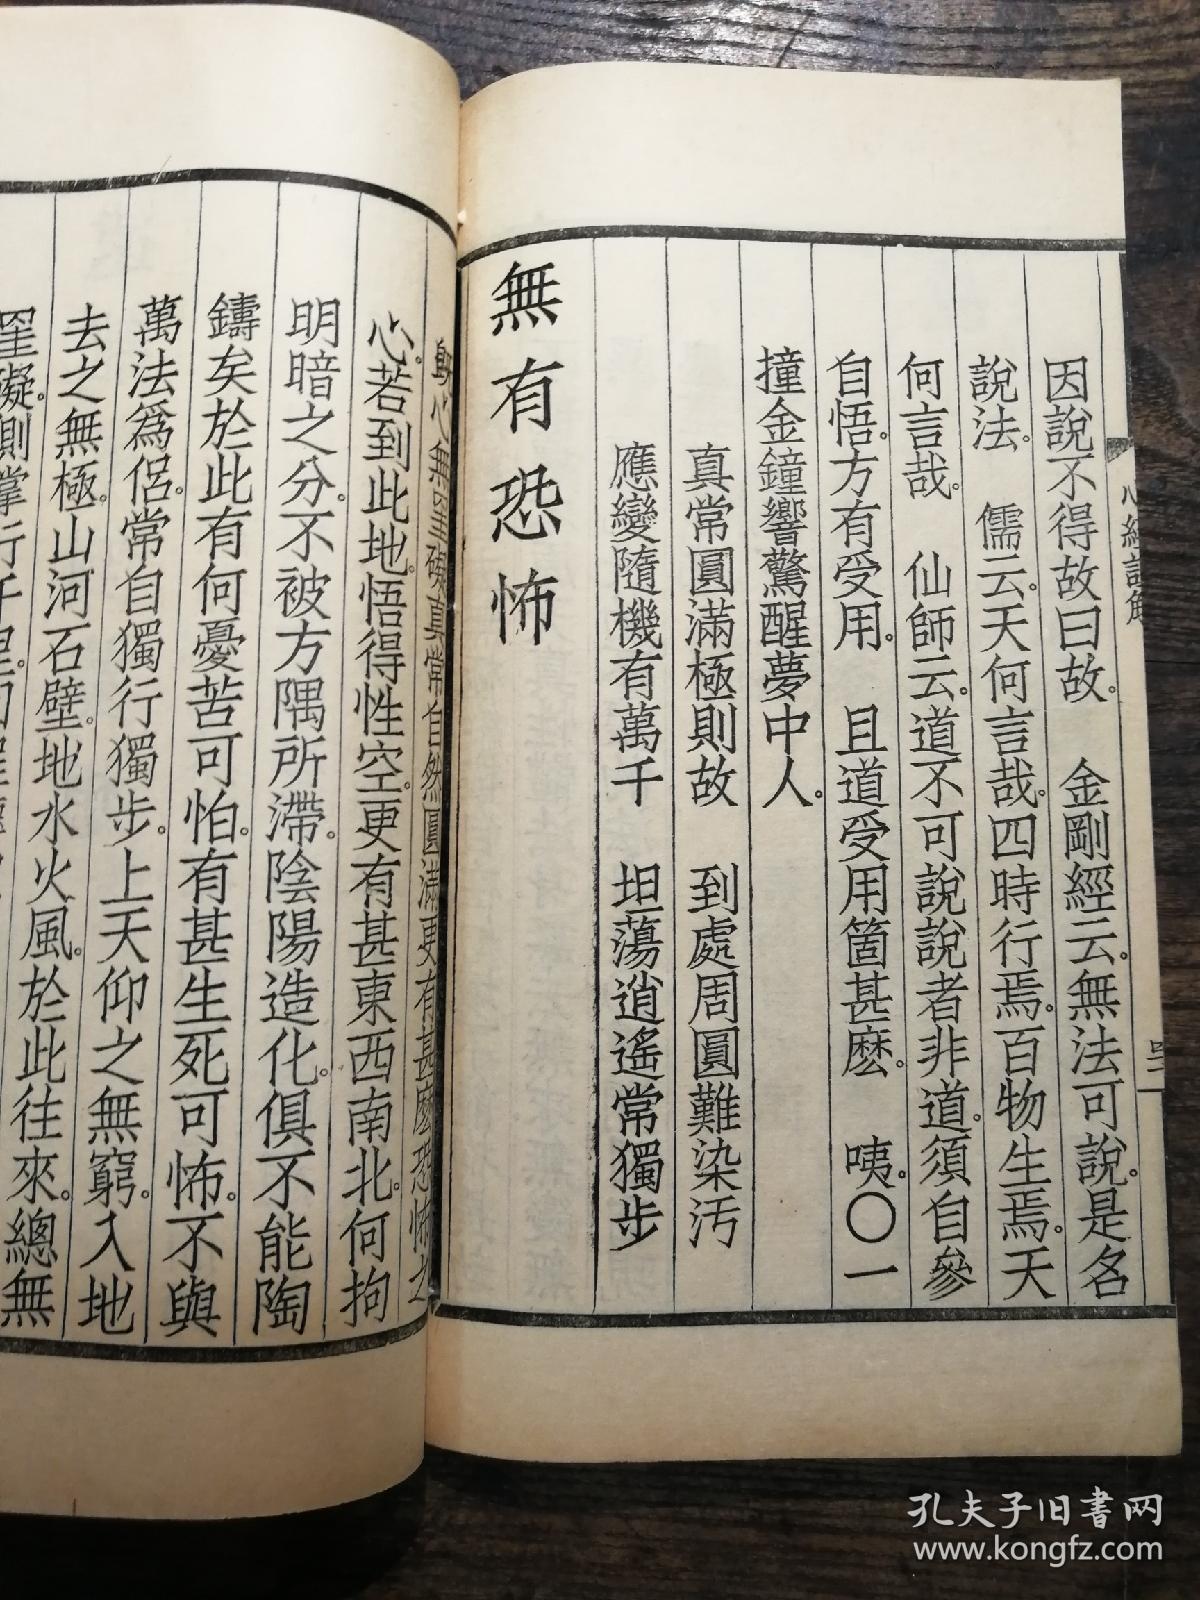 因說不得故曰故。　金剛經云。無法可說。是名
說法。　儒云。天何言哉。四時行焉。百物生焉。天
何言哉。　仙師云。道不可說說者非道。須自參
自悟。方有受用。　且道受用箇甚麽。　咦。〇一
撞金鐘響驚醒夢中人。
真常圓滿極則故　到處周圓難染汚
應變隨機有萬千　坦蕩逍遙常獨步
無有恐怖
心無罣礙真常自然圓滿更有甚麽恐怖之
心。若到此地。悟得性空。更有甚東西南北。何拘
明暗之分。不被方隅所滯。陰陽造化。俱不能陶
鑄矣於此有何憂苦可怕。有甚生死可怖。不與
萬法爲侶。常自獨行獨步。上天仰之無窮。入地
去之無極。山河石壁。地水火風。於此往來。總無
罣礙。
心經註解
孔夫子旧书网
www.kongfz.com